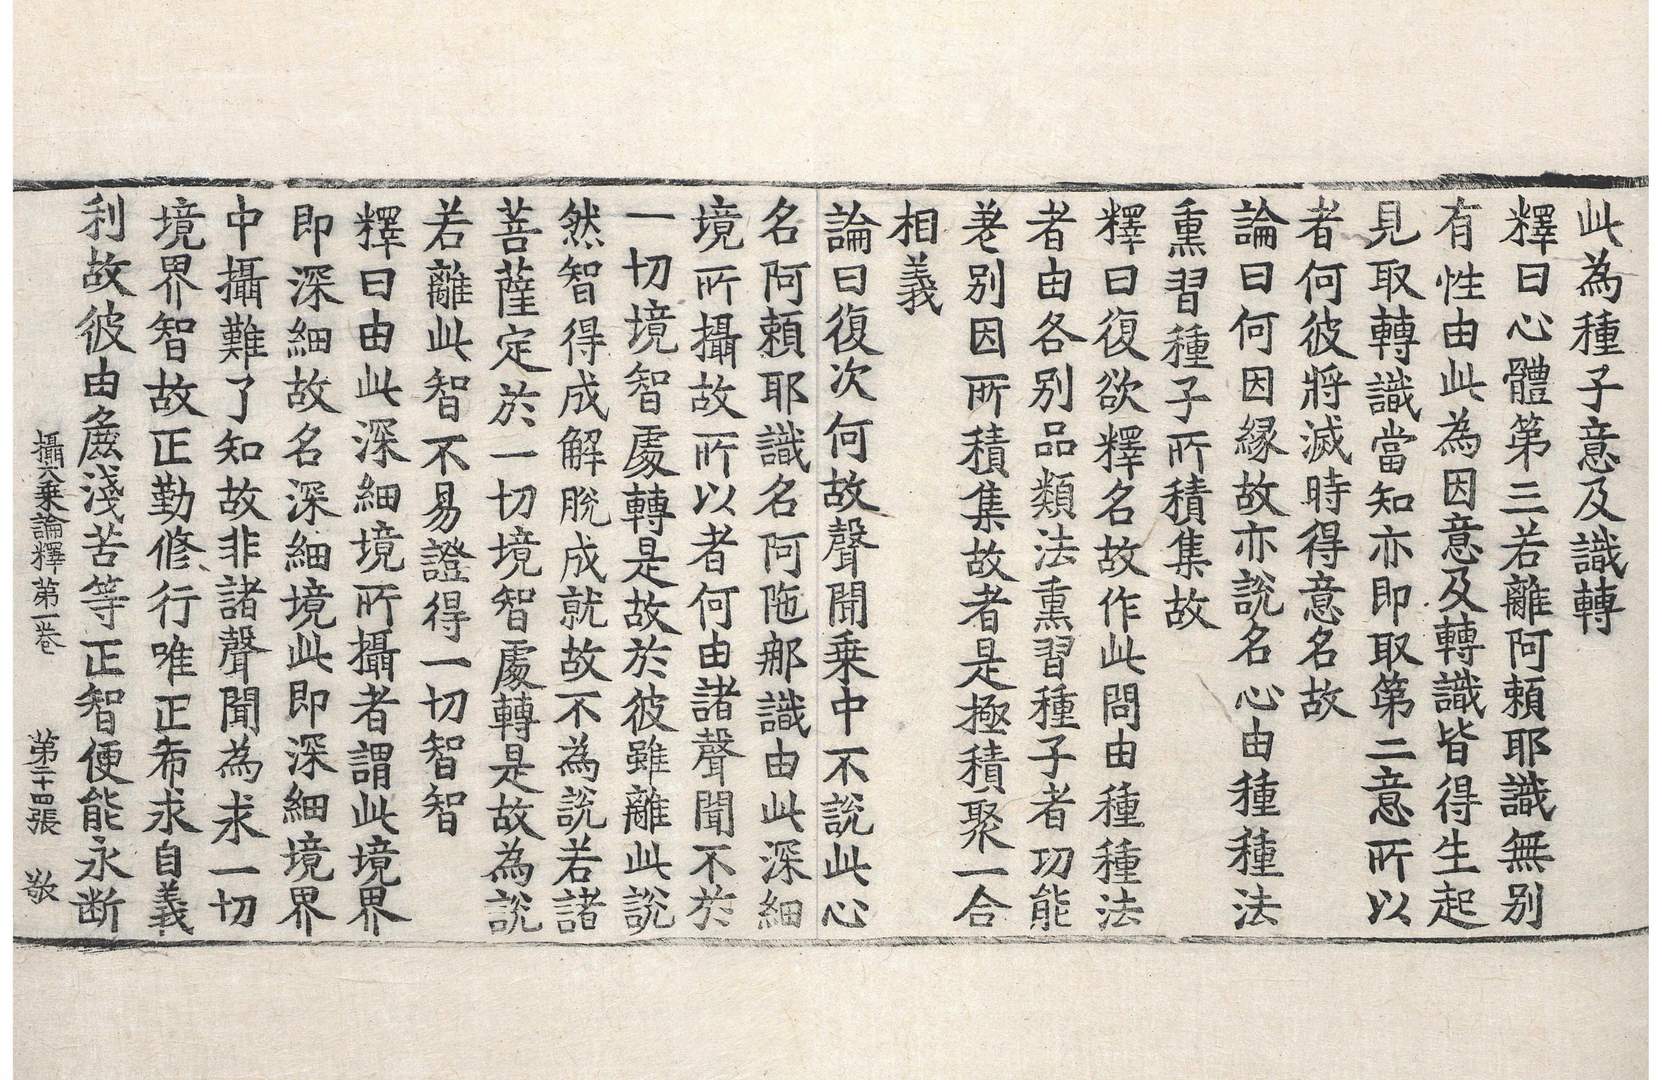 此為種子意及識轉
釋曰心體第三若離阿賴耶識無別
有性由此為因意及轉識皆得生起
見取轉識當知亦即取第二意所以
者何彼將滅時得意名故
論曰何因緣故亦說名心由種種法
熏習種子所積集故
釋曰復欲釋名故作此問由種種法
者由各別品類法熏習種子者功能
差別因所積集故者是極積聚一合
相義
論曰復次何故聲聞乗中不說此心
名阿賴耶識名阿陁那識由此深細
境所攝故所以者何由諸聲聞不於
一切境智處轉是故於彼雖離此說
然智得成解脫成就故不為說若諸
菩薩定於一切境智處轉是故為說
若離此智不易證得一切智智
釋曰由此深細境所攝者謂此境界
即深細故名深細境此即深細境界
中攝難了知故非諸聲聞為求一切
境界智故正勤修行唯正希求自義
利故彼由麁淺苦等正智便能永斷
攝大乗論釋第一卷 第二十四張 敬